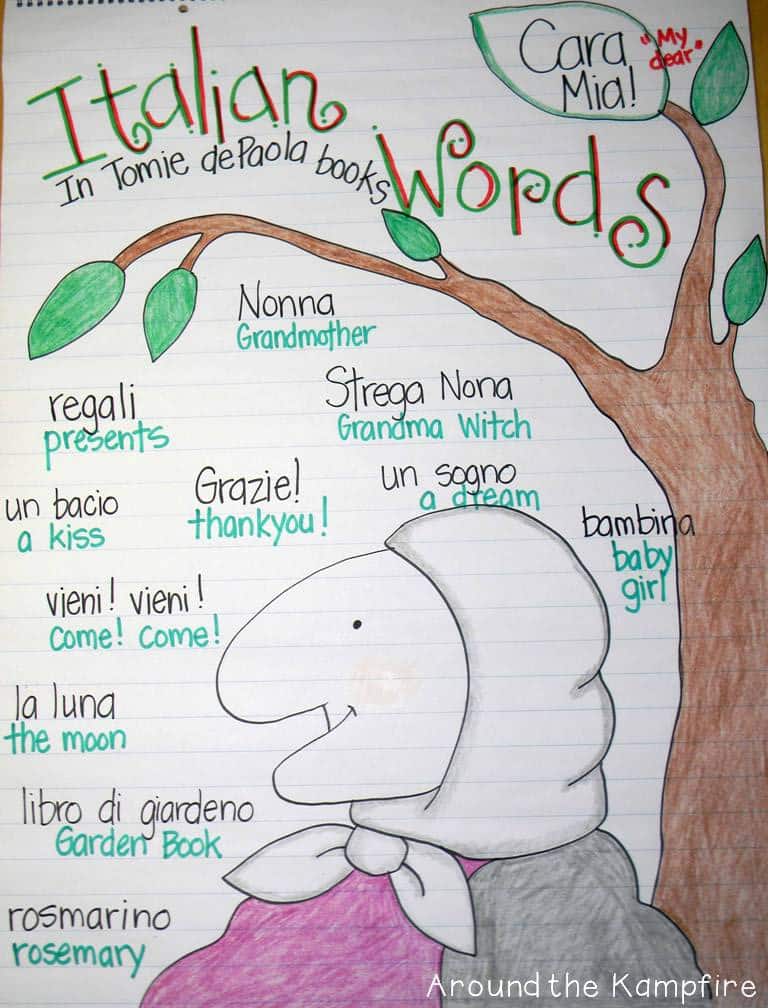 Cara
Mia!
"My
dear"
Italian
In Tomie dePaola books
Words
Nonna
Grandmother
regali
presents
Strega Nona
Grandma Witch
un bacio
a kiss
Grazie!
thankyou!
un sogno
a dream
bambina
baby
girl
vieni! vieni!
Come! Come!
la luna
the moon
libro di giardeno
Garden Book
rosmarino
rosemary
Around the Kampfire